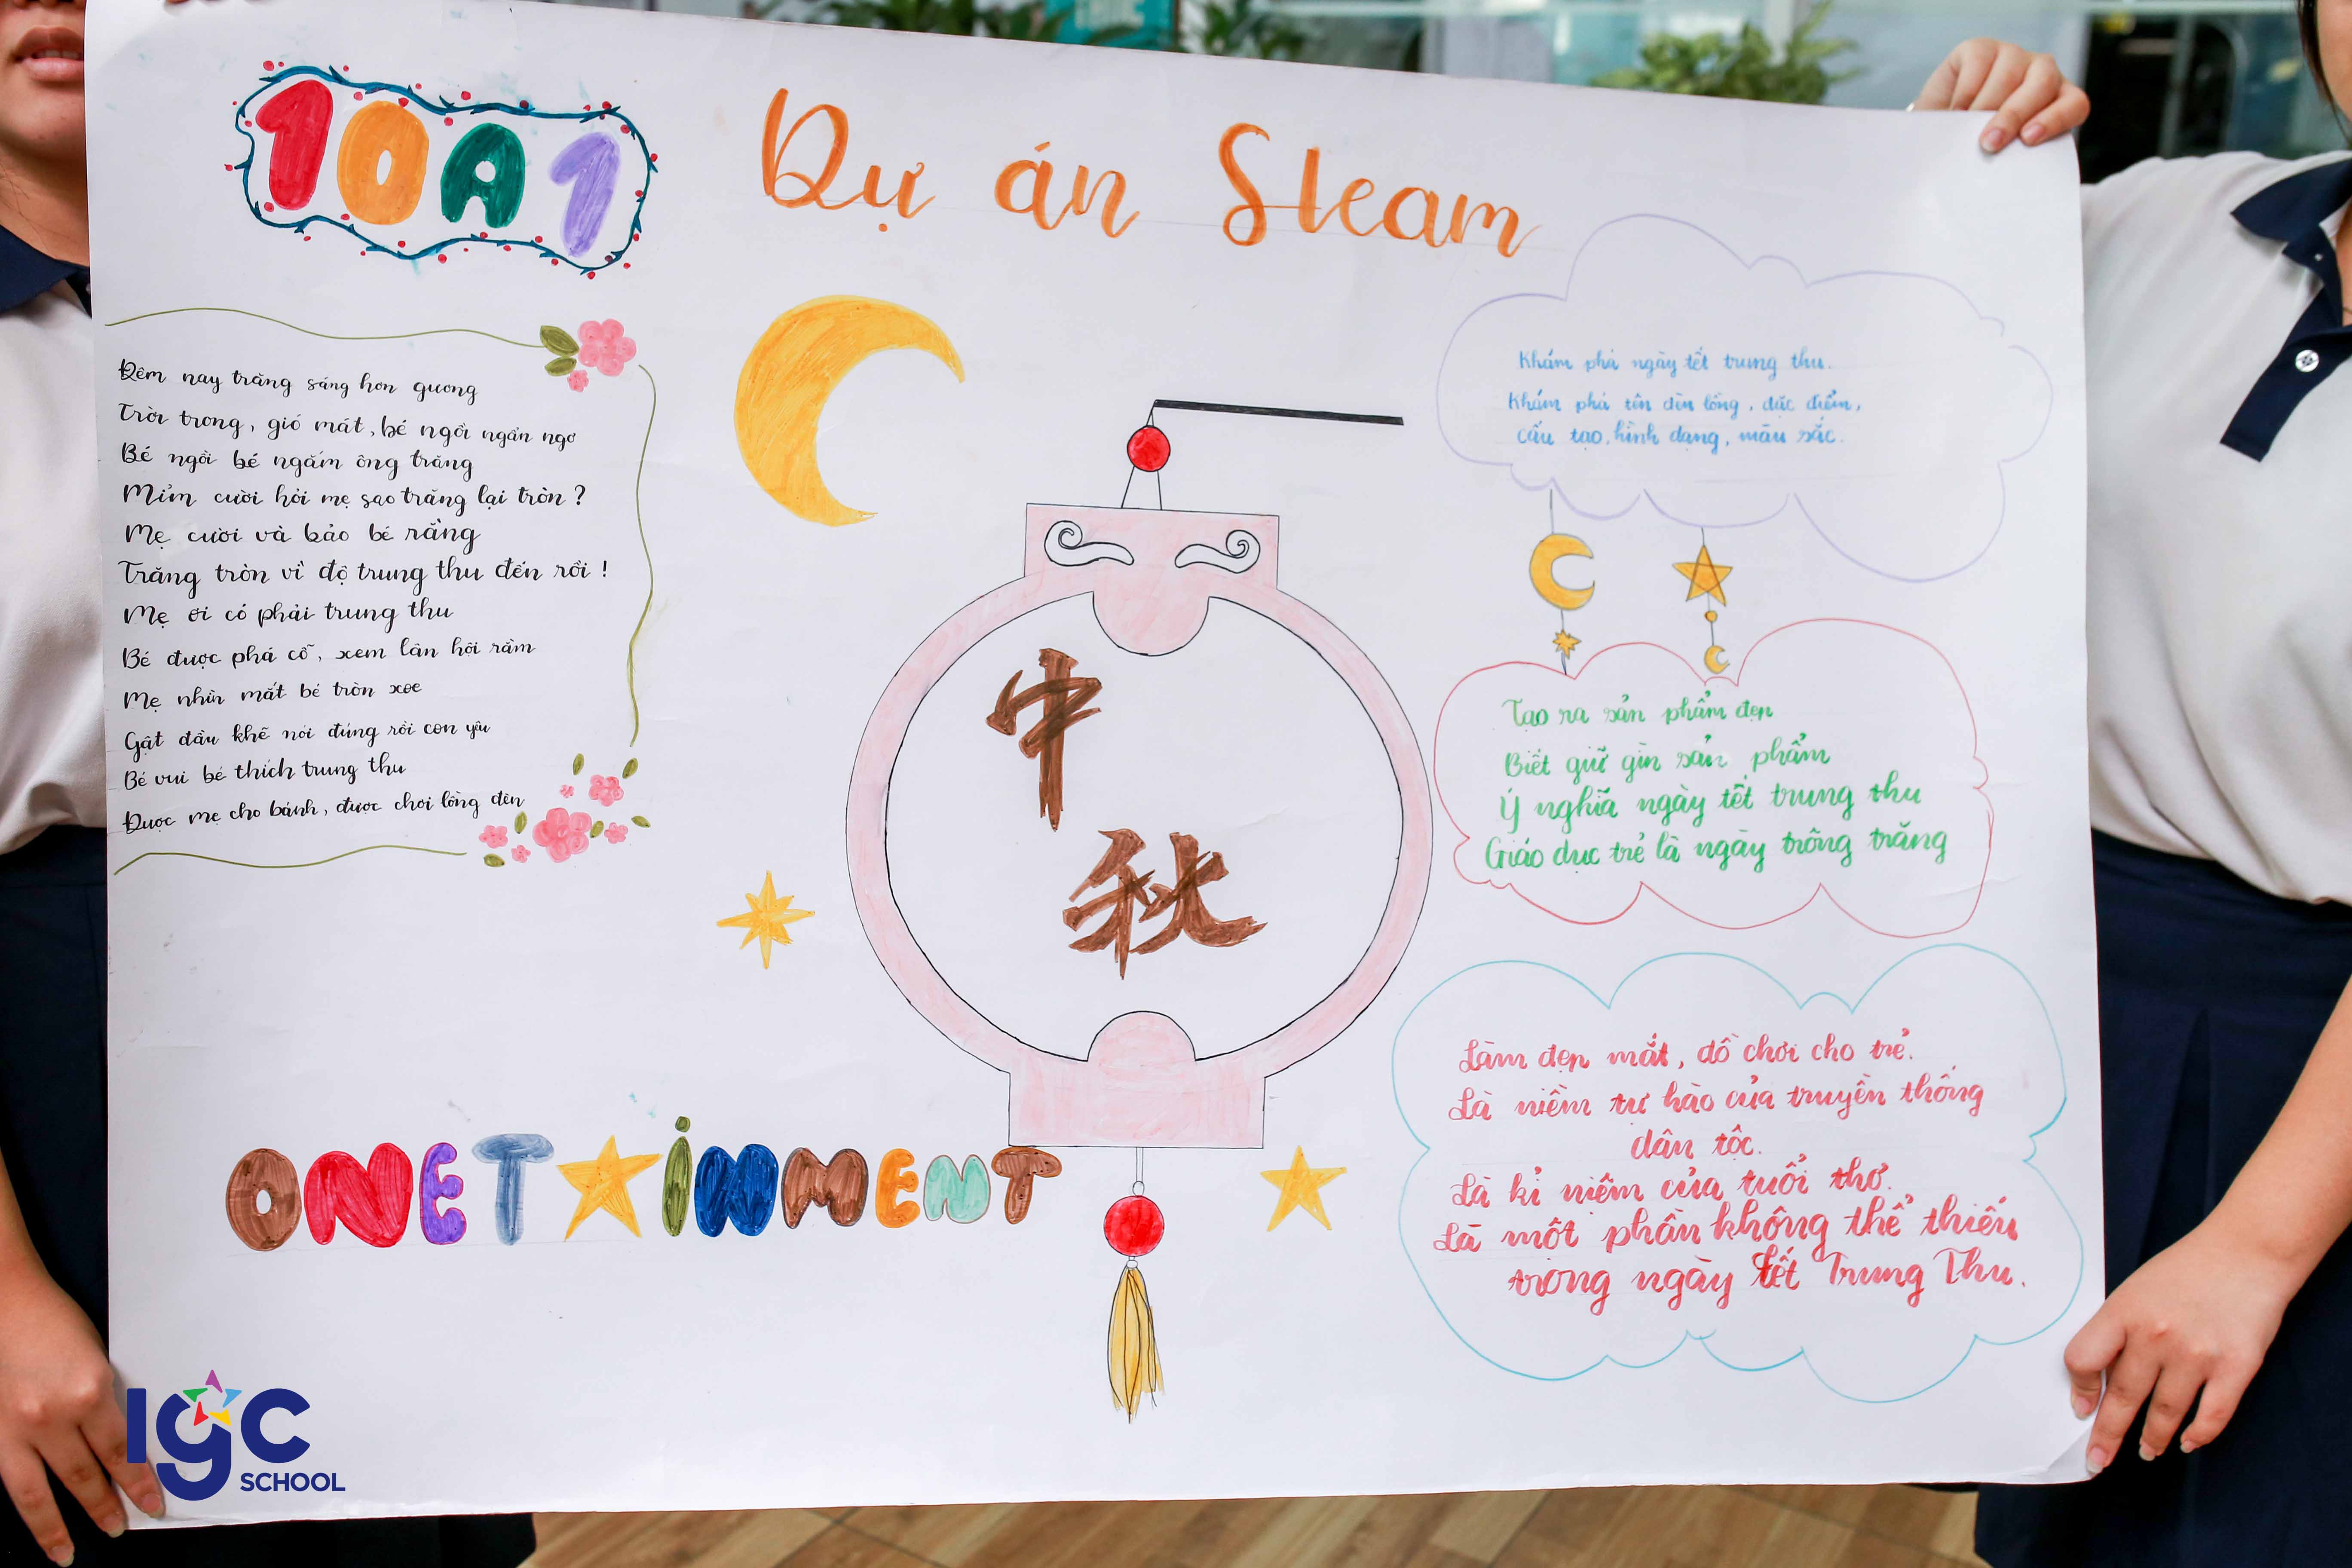 10A1
Dự án Steam
Đêm nay trăng sáng hơn gương
Trời trong, gió mát, bé ngồi ngẩn ngơ
Bé ngồi bé ngắm ông trăng
Mỉm cười hỏi mẹ sao trăng lại tròn ?
Mẹ cười và bảo bé rằng
Trăng tròn vì độ trung thu đến rồi !
Mẹ ơi có phải trung thu
Bé được phá cỗ, xem lân hội rằm
Mẹ nhìn mắt bé tròn xoe
Gật đầu khẽ nói đúng rồi con yêu
Bé vui bé thích trung thu
Được mẹ cho bánh, được chơi lồng đèn
中
秋
Khám phá ngày tết trung thu.
Khám phá tên đèn lồng, đặc điểm,
cấu tạo, hình dạng, màu sắc.
Tạo ra sản phẩm đẹp
Biết giữ gìn sản phẩm
Ý nghĩa ngày tết trung thu
Giáo dục trẻ là ngày trông trăng
Làm đẹp mắt, đồ chơi cho trẻ.
Là niềm tự hào của truyền thống
dân tộc.
Là kỉ niệm của tuổi thơ.
Là một phần không thể thiếu
trong ngày tết Trung Thu.
ONET★iNMENT
IGC
SCHOOL